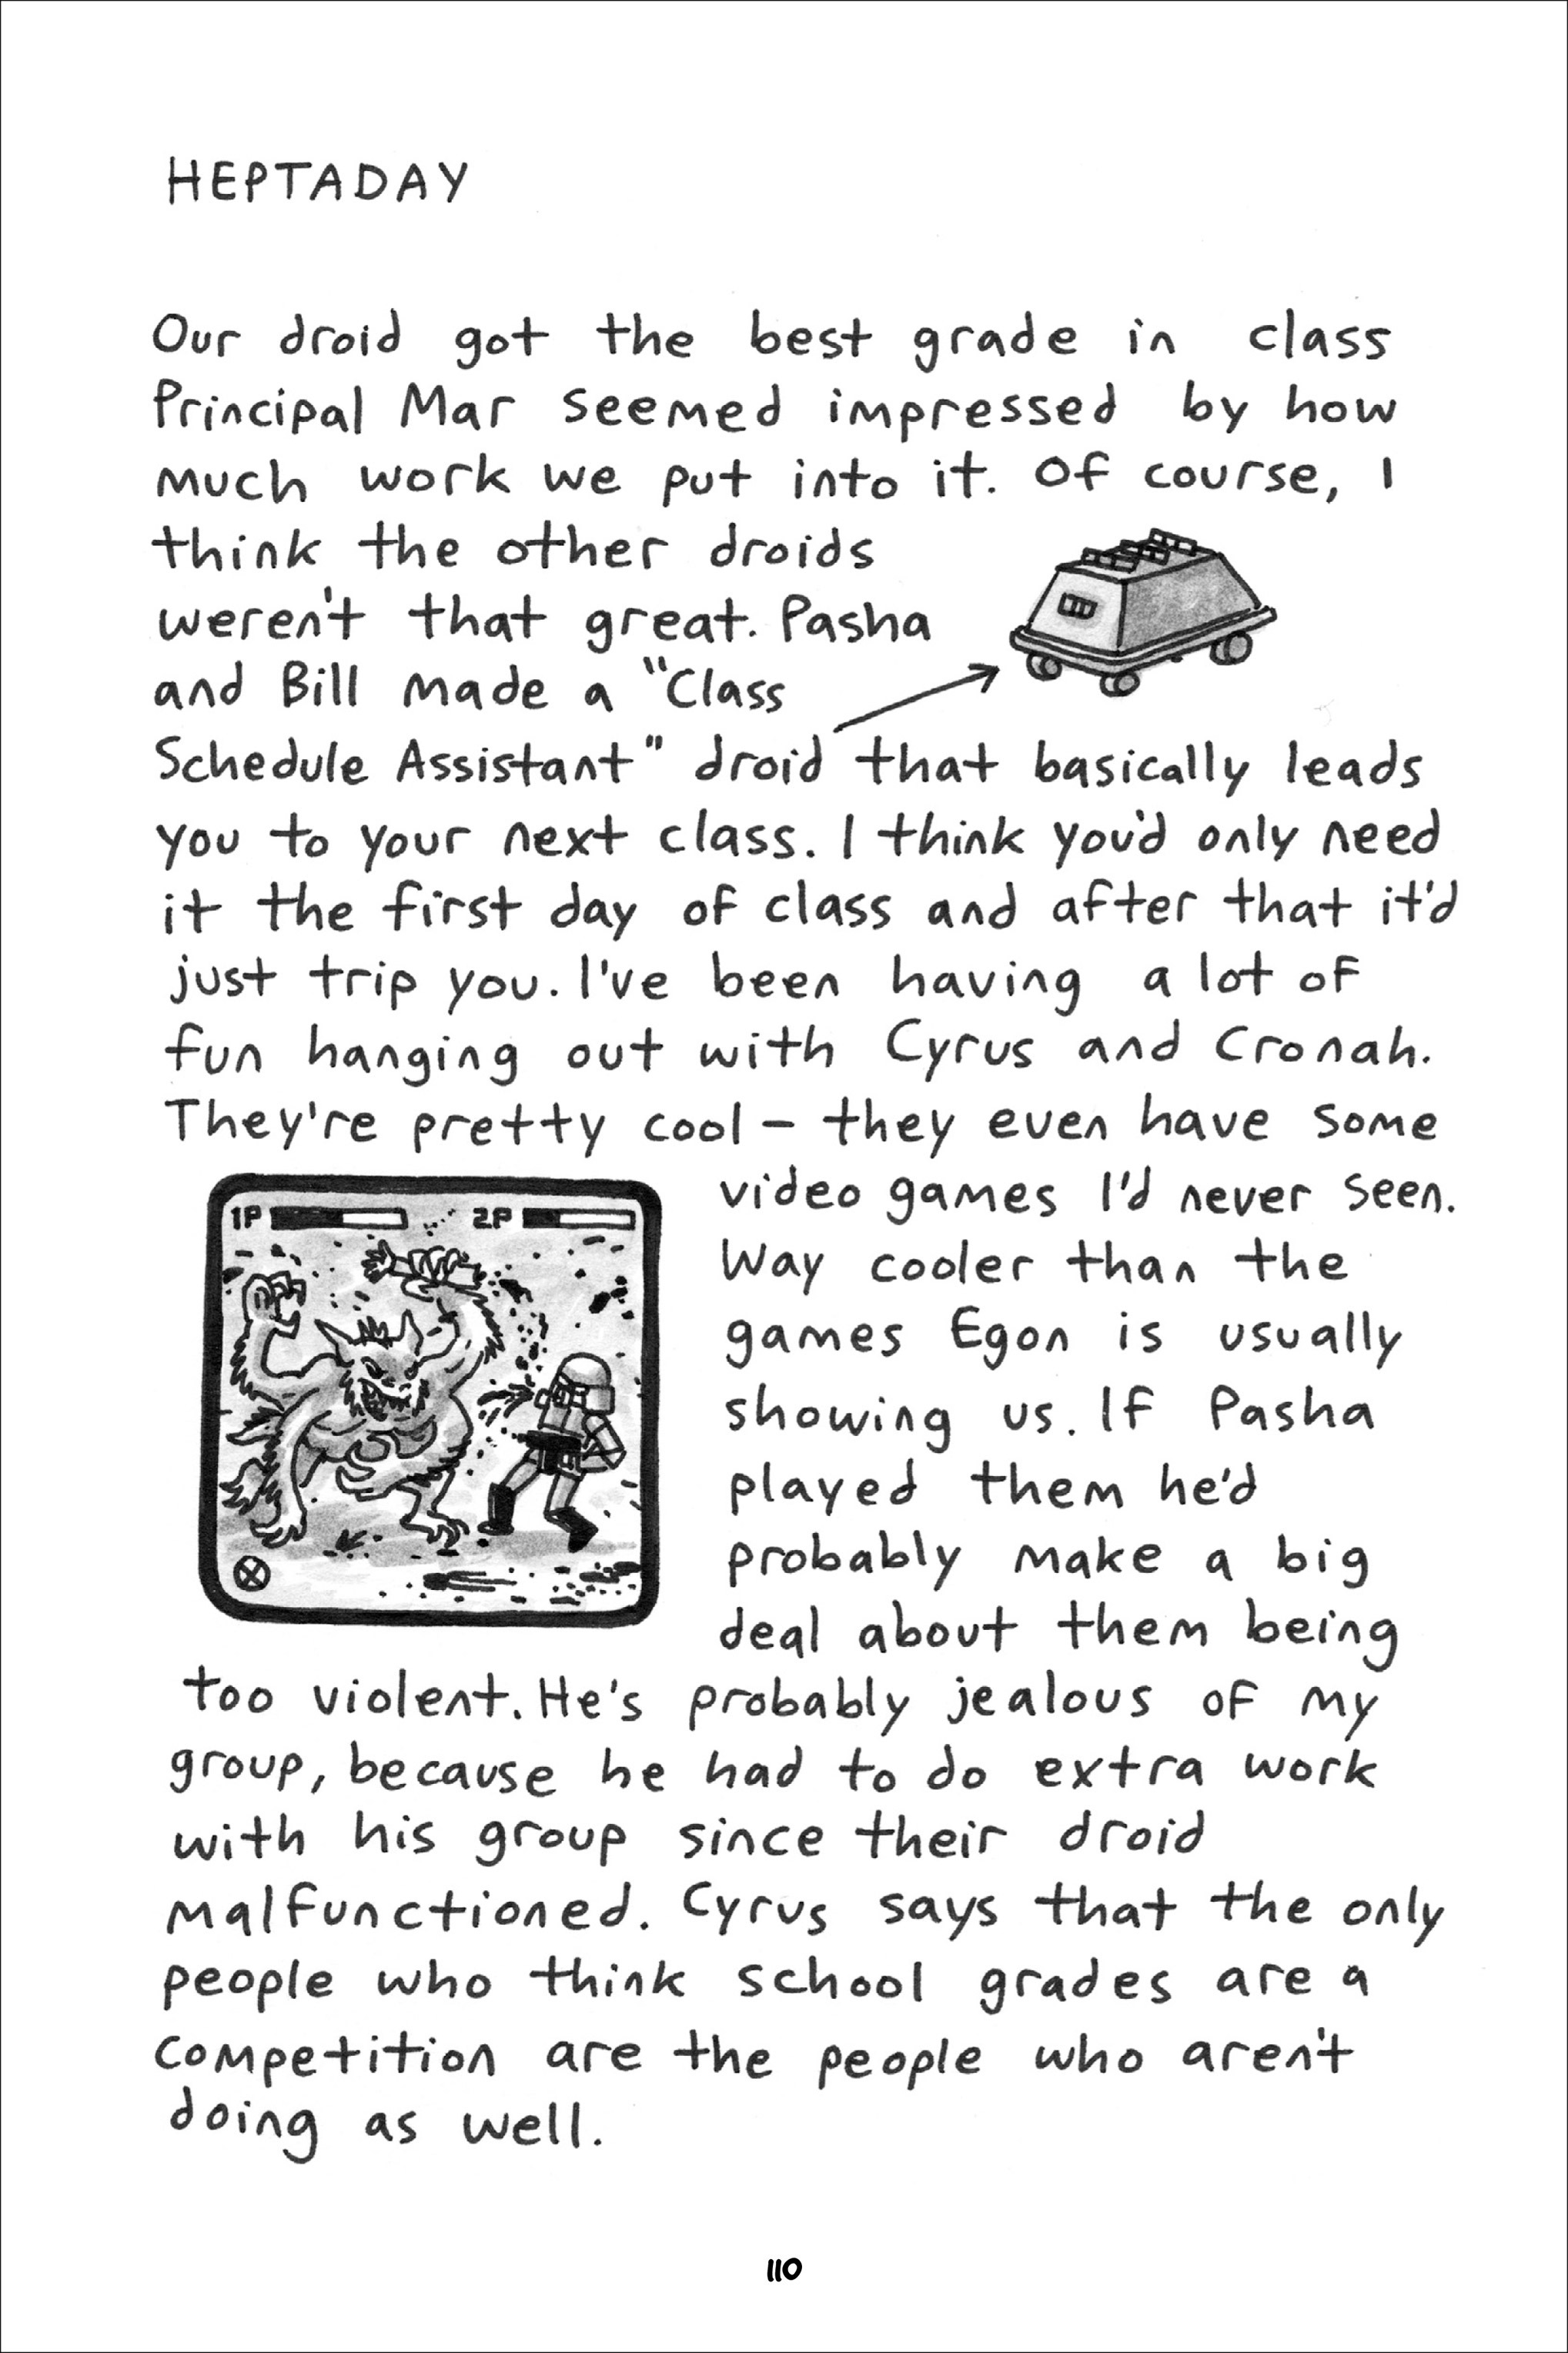 HEPTADAY
Our droid got the best grade in class
Principal Mar seemed impressed by how
much work we put into it. Of course, I
think the other droids
weren't that great. Pasha
and Bill made a "Class
Schedule Assistant" droid that basically leads
you to your next class. I think you'd only need
it the first day of class and after that it'd
just trip you. I've been having a lot of
fun hanging out with Cyrus and Cronah.
They're pretty cool – they even have some
video games I'd never seen.
Way cooler than the
games Egon is usually
showing us. If Pasha
played them he'd
probably make a big
deal about them being
1P 2P
too violent. He's probably jealous of my
group, because he had to do extra work
with his group since their droid
malfunctioned. Cyrus says that the only
people who think school grades are a
competition are the people who aren't
doing as well.
110